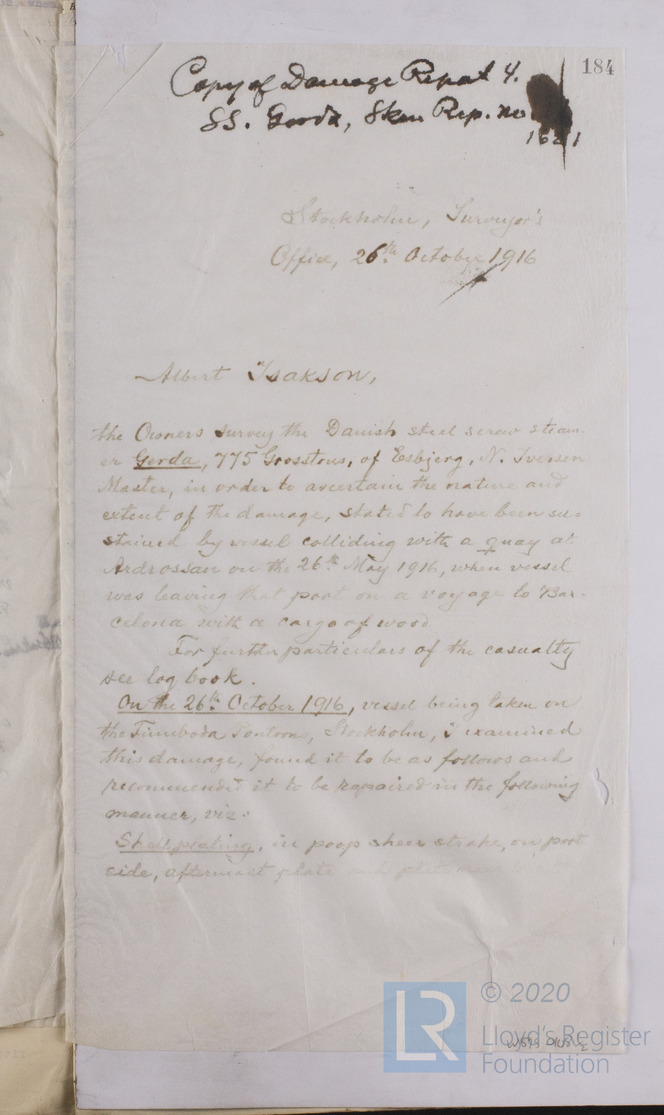 184
Copy of Damage Report 4.
SS. Gerda, Skm Rep. no
1621
Stockholm, Surveyor's
Office, 26th October 1916
Albert Isakson,
the Owners survey the Danish steel screw steam-
er Gerda, 775 Grosstons, of Esbjerg, N. Iversen
Master, in order to ascertain the nature and
extent of the damage, stated to have been su-
stained by vessel colliding with a quay at
Ardrossan on the 26th May 1916, when vessel
was leaving that port on a voyage to Bar-
celona with a cargo of wood
For further particulars of the casualty
see log book.
On the 26th October 1916, vessel being taken on
the Finnboda Pontoons, Stockholm, I examined
this damage, found it to be as follows and
recommended it to be repaired in the following
manner, viz:
Shell plating, in poop sheer strake, on port
side, aftermost plate and
LR
© 2020
Lloyd's Register
Foundation